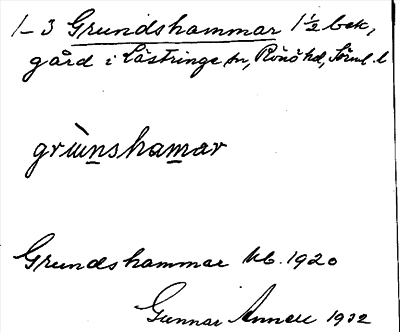 1–3 Grundshammar 1½ bek,
gård i Lästringe sn, Rönö hd, Sörml. l
grùnshamar
Grundshammar Ub. 1920
Gunnar Annell 1932